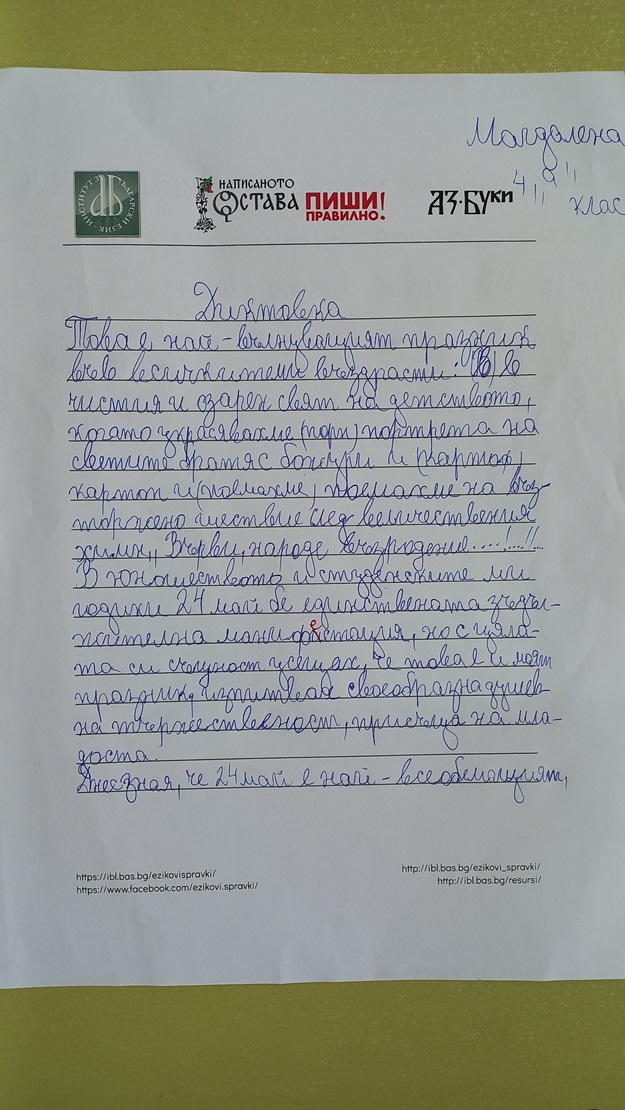 Магдалена
4 "а"
клас
ИНСТИТУТ ЗА БЪЛГАРСКИ ЕЗИК
НАПИСАНОТО
ОСТАВА ПИШИ!
ПРАВИЛНО!
АЗ·БУКИ
Диктовка
Това е най-вълнуващият празник
във всички теми възрасти: (В) в
чистия и озарен свят на детството,
когато украсявахме (порт) портрета на
светите братя с божури и (картоф)
картон и (поемахме) поемахме на въз-
торжено шествие след величествения
химн „Върви, народе възродени....!...!!
В юношеството и студенските ми
години 24 май бе единствената задъл-
жителна манифестация, но с цяла-
та си същност усещах, че това е и моят
празник, изпитвах своеобразна душев
на тържественост, присъща на мла-
достта.
Днес зная, че 24 май е най-всеобемащият,
https://ibl.bas.bg/ezikovispravki/
https://www.facebook.com/ezikovi.spravki/
http://ibl.bas.bg/ezikovi_spravki/
http://ibl.bas.bg/resursi/